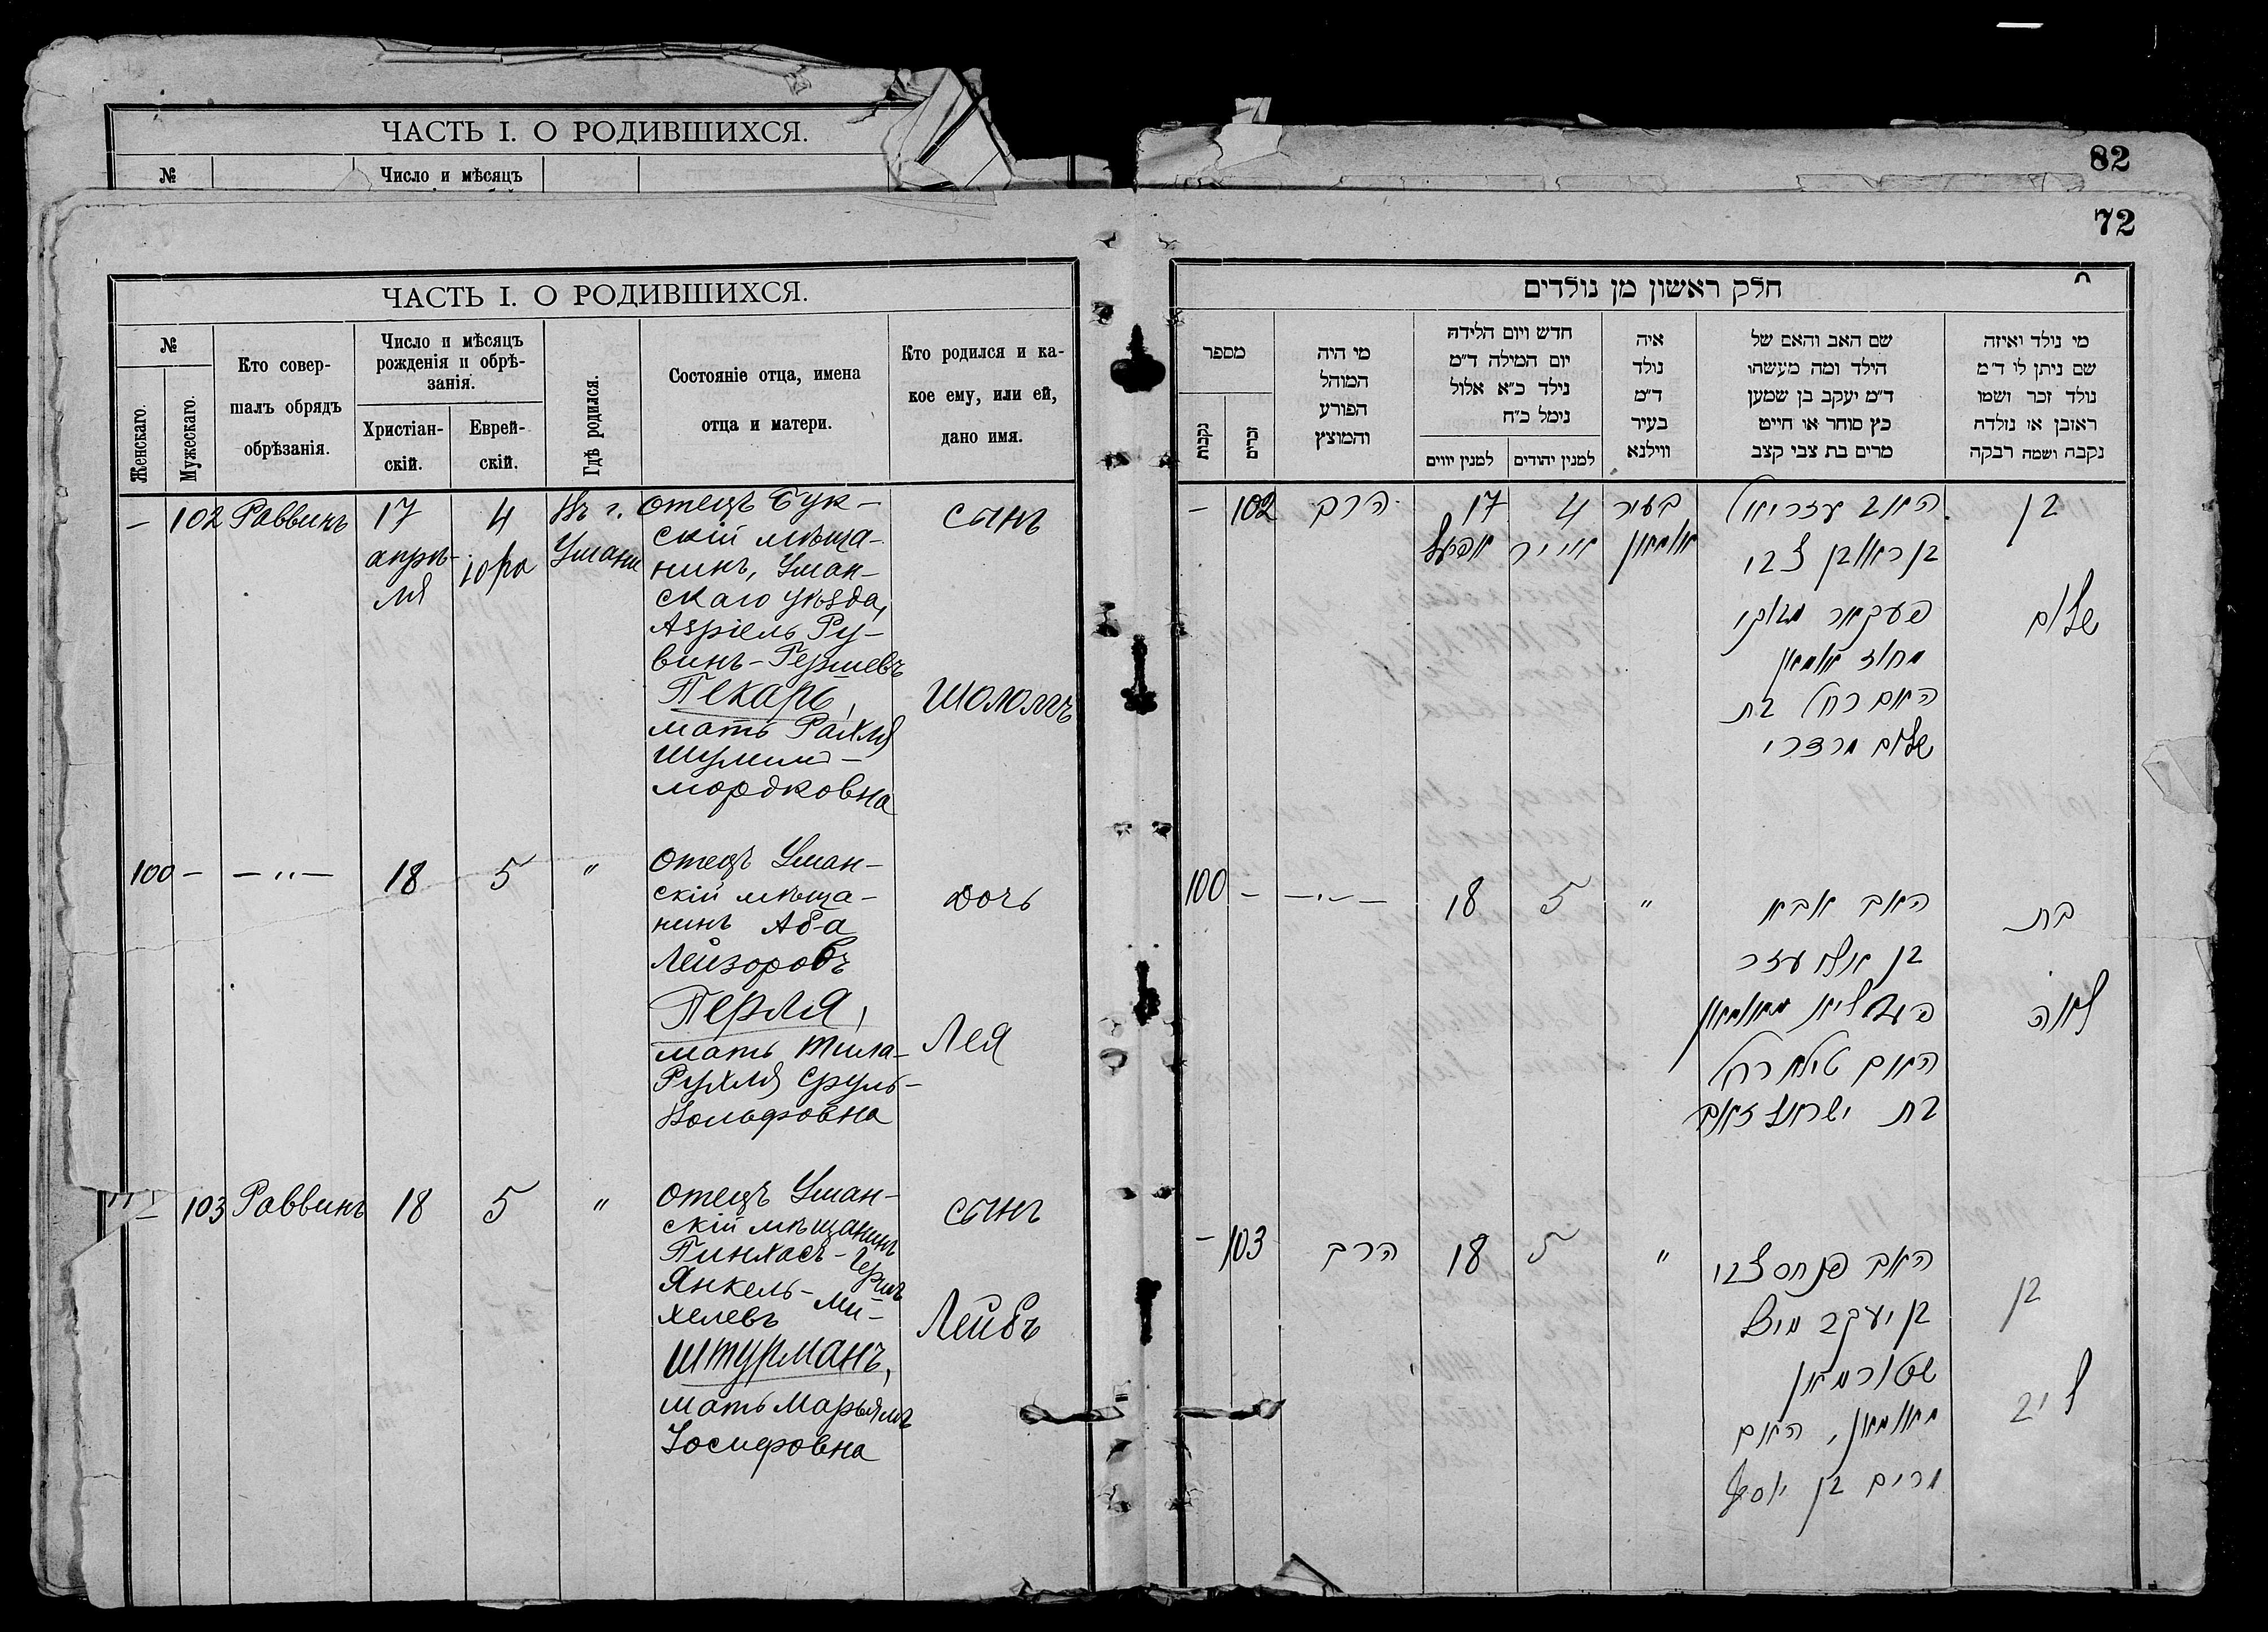 82
ЧАСТЬ I. О РОДИВШИХСЯ.
№
Число и мѣсяцъ
72
ЧАСТЬ I. О РОДИВШИХСЯ.
№
Женскаго.
Мужескаго.
Кто совер-
шалъ обрядъ
обрѣзанія.
Число и мѣсяцъ
рожденія и обрѣ-
занія.
Христіан-
скій.
Еврей-
скій.
Гдѣ родился.
Состояніе отца, имена
отца и матери.
Кто родился и ка-
кое ему, или ей,
дано имя.
— 102 Раввинъ
17
апрѣ-
ля
4
іора
Въ г.
Умани
отецъ Бук-
скій мѣща-
нинъ, Уман-
скаго уѣзда,
Азріель Ру-
винъ-Гершевъ
Пекарь,
мать Рахля
Шулимъ-
мордковна
сынъ
Шоломъ
100 — — " —
18
5
"
отецъ Уман-
скій мѣща-
нинъ Аба
Лейзоровъ
Перля,
мать Тила-
Рухля Сруль-
Вольфовна
дочь
Лея
— 103 Раввинъ
18
5
"
отецъ Уман-
скій мѣщанинъ
Пинхасъ-Герш
Янкель-Ми-
хелевъ
Штурманъ,
мать Марьямъ
Іосифовна
сынъ
Лейбъ
חלק ראשון מן נולדים
מספר
נקבות
זכרים
מי היה
המוהל
הפורע
והמוצץ
חדש ויום הלידה
יום המילה ד"מ
נילד כ"א אלול
נימל כ"ח
למנין יווים
למנין יהודים
איה
נולד
ד"מ
בעיר
ווילנא
שם האב והאם של
הילד ומה מעשהו
ד"מ יעקב בן שמען
כץ סוחר או חייט
מרים בת צבי קצב
מי נולד ואיזה
שם ניתן לו ד"מ
נולד זכר ושמו
ראובן או נולדה
נקבה ושמה רבקה
— 102
הרב
17
אפריל
4
אייר
בעיר
אומאן
האב עזריאל
בן ראובן צבי
פעקאר מבוקי
מחוז אומאן
האם רחל בת
שלום מרדכי
בן
שלום
100 — — " —
18
5
"
האב אבא
בן אליעזר
פערליא מאומאן
האם טילא רחל
בת ישראל זאב
בת
לאה
— 103
הרב
18
5
"
האב פנחס צבי
בן יעקב מיכל
שטורמאן
מאומאן, האם
מרים בן יוסף
בן
ליב